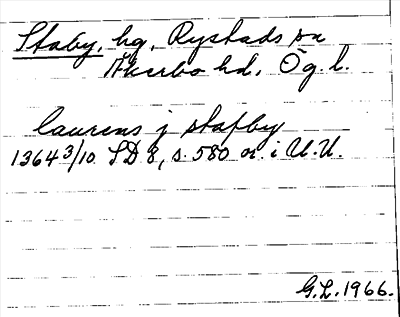 Staby, hg, Rystads sn
Åkerbo hd, Ög. l.
laurens j stafby
1364 3/10 SD 8, s. 580 or. i U.U.
G.L. 1966.